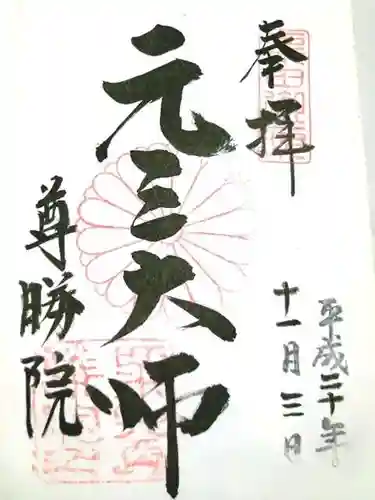 奉拝
平成二十年
十一月三日
元三大師
尊勝院